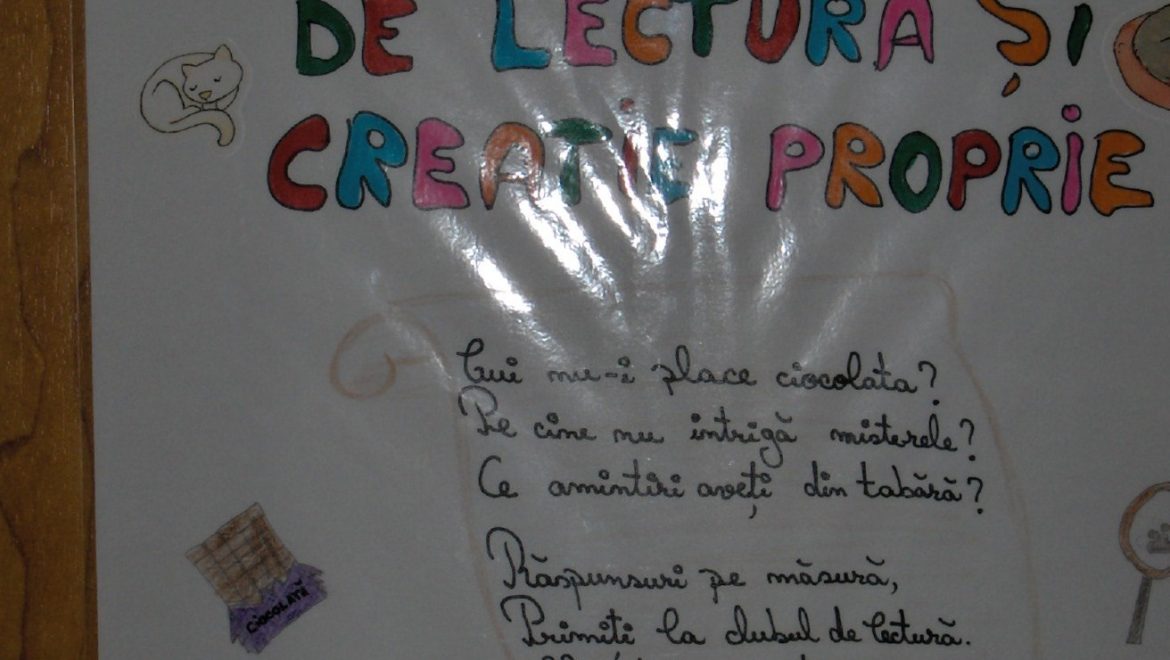 DE LECTURA ȘI
CREATIE PROPRIE
Cui nu-i place ciocolata?
Pe cine nu intrigă misterele?
Ce amintiri aveți din tabără?
Răspunsuri pe măsură,
Primiti la clubul de lectură.
CIOCOLATĂ